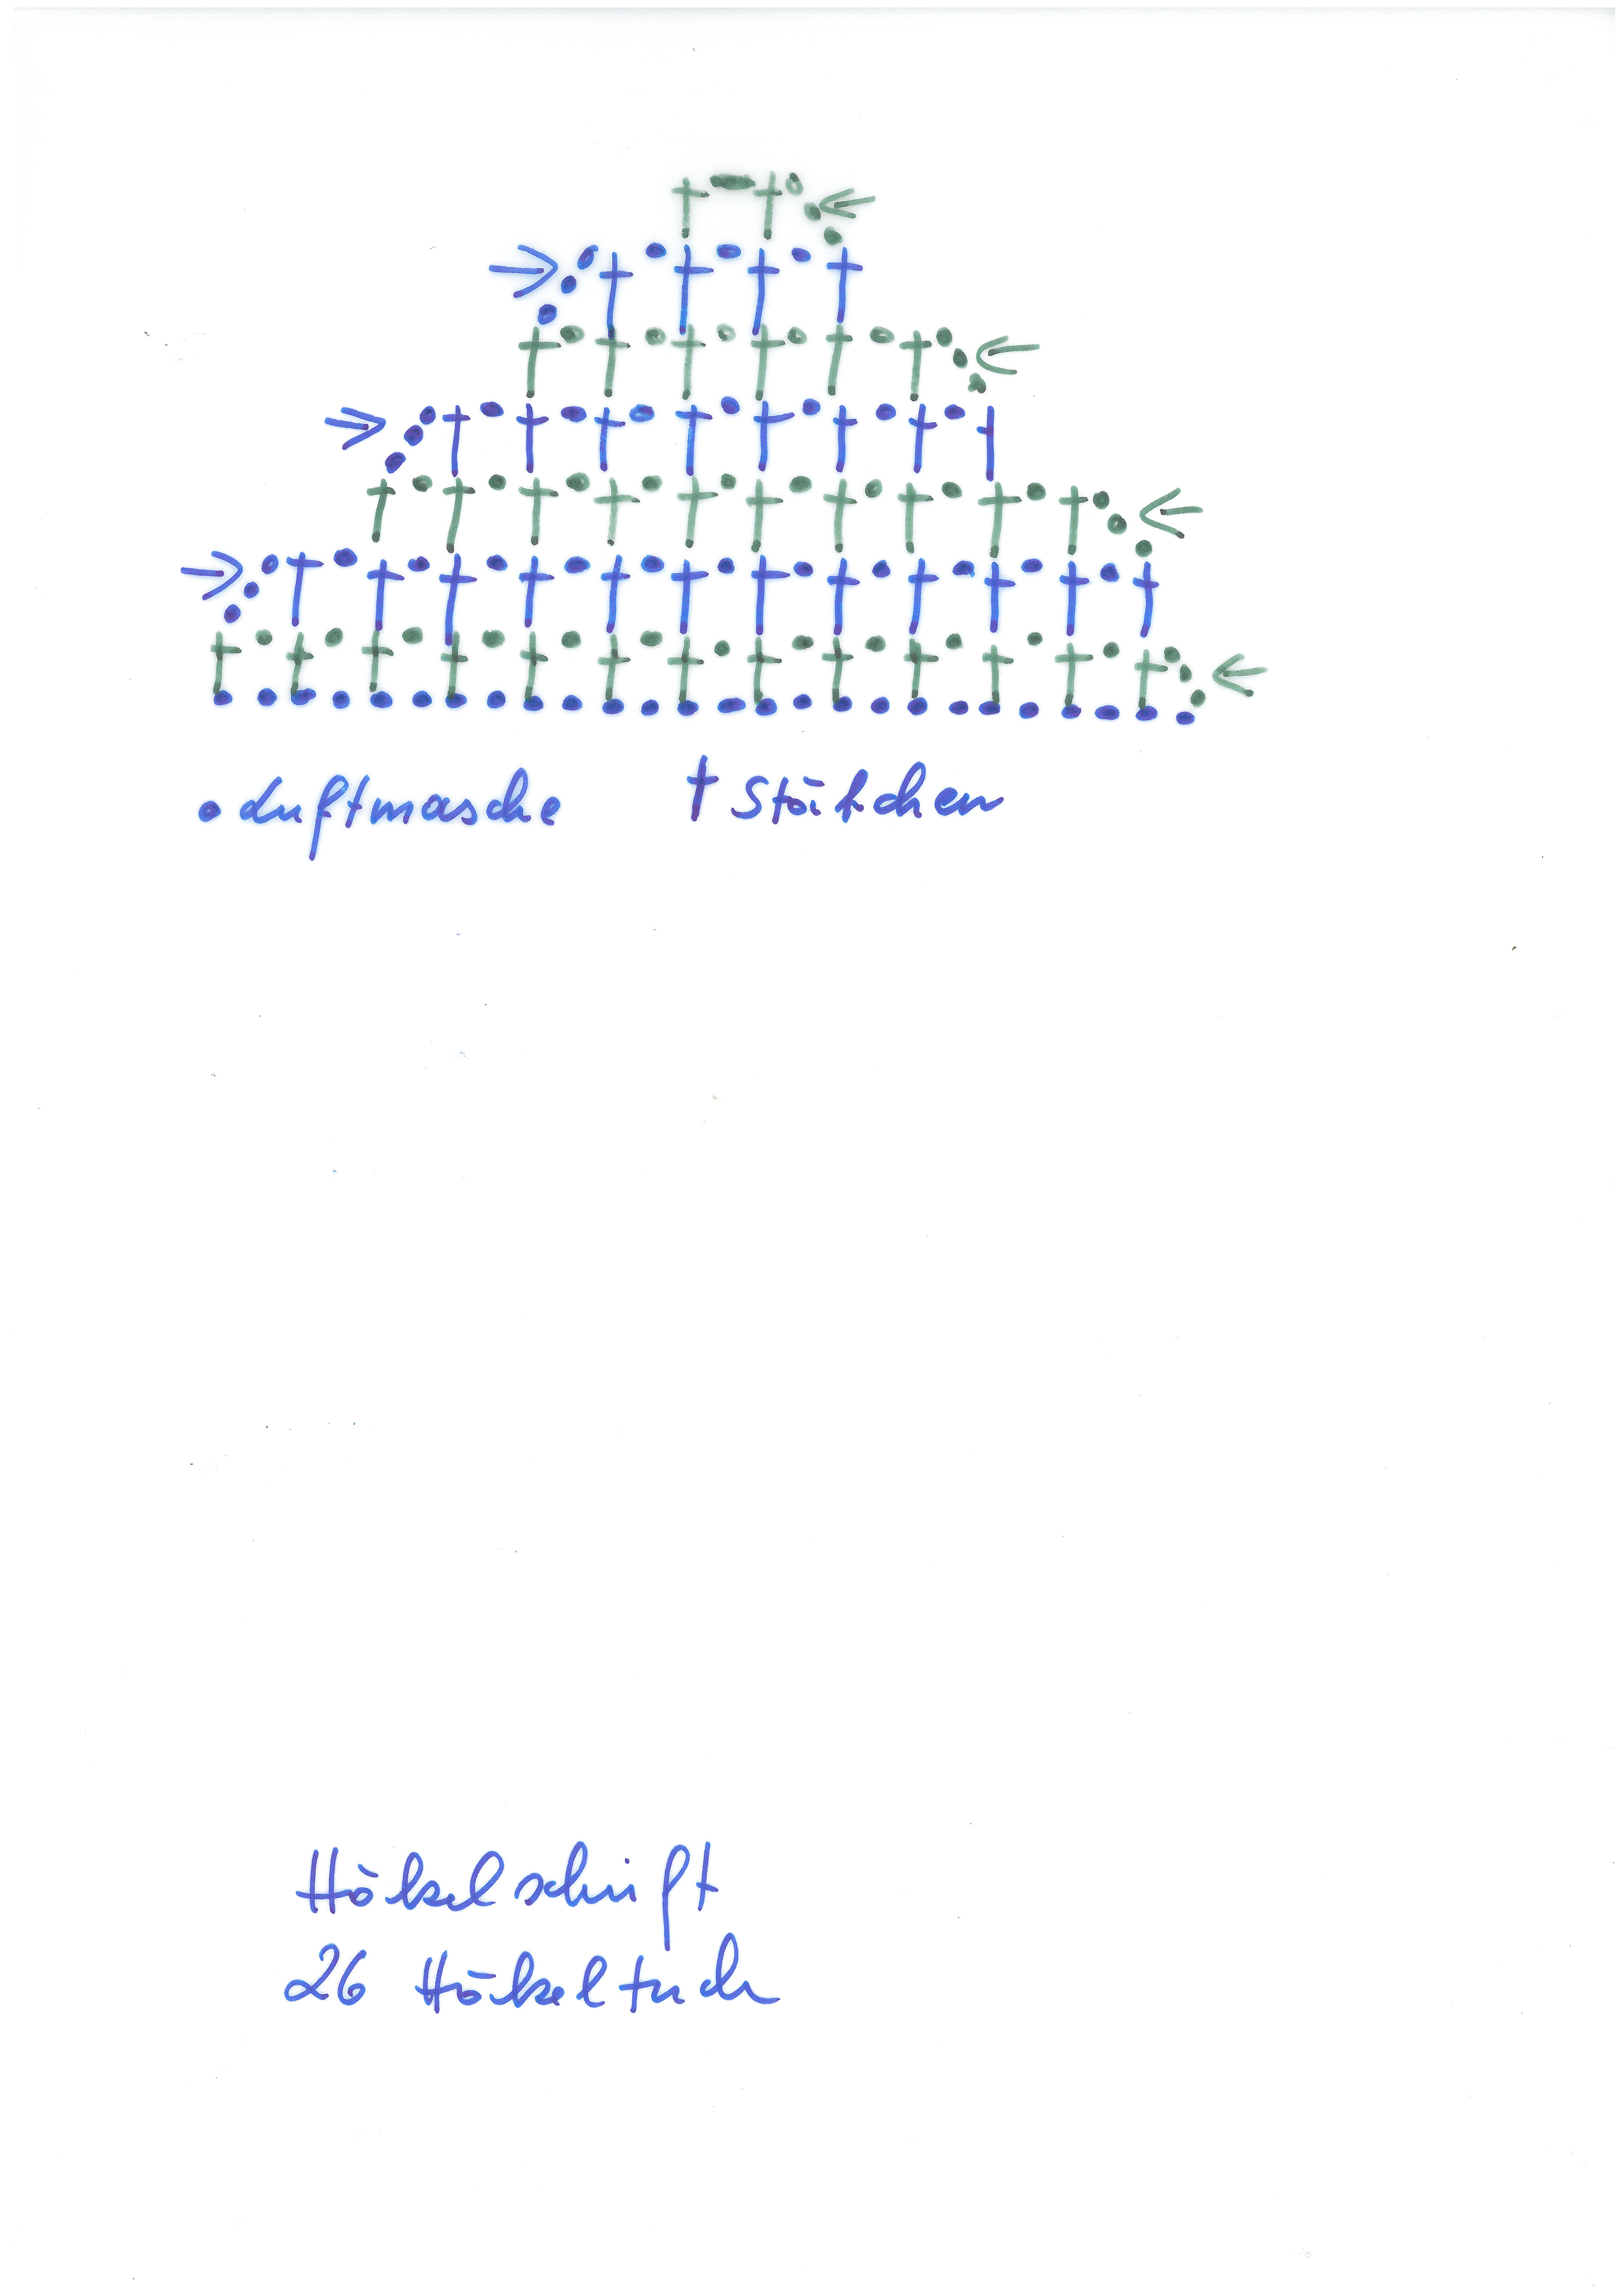 • Luftmasche † Stäbchen
Häkelschrift
26 Häkeltuch